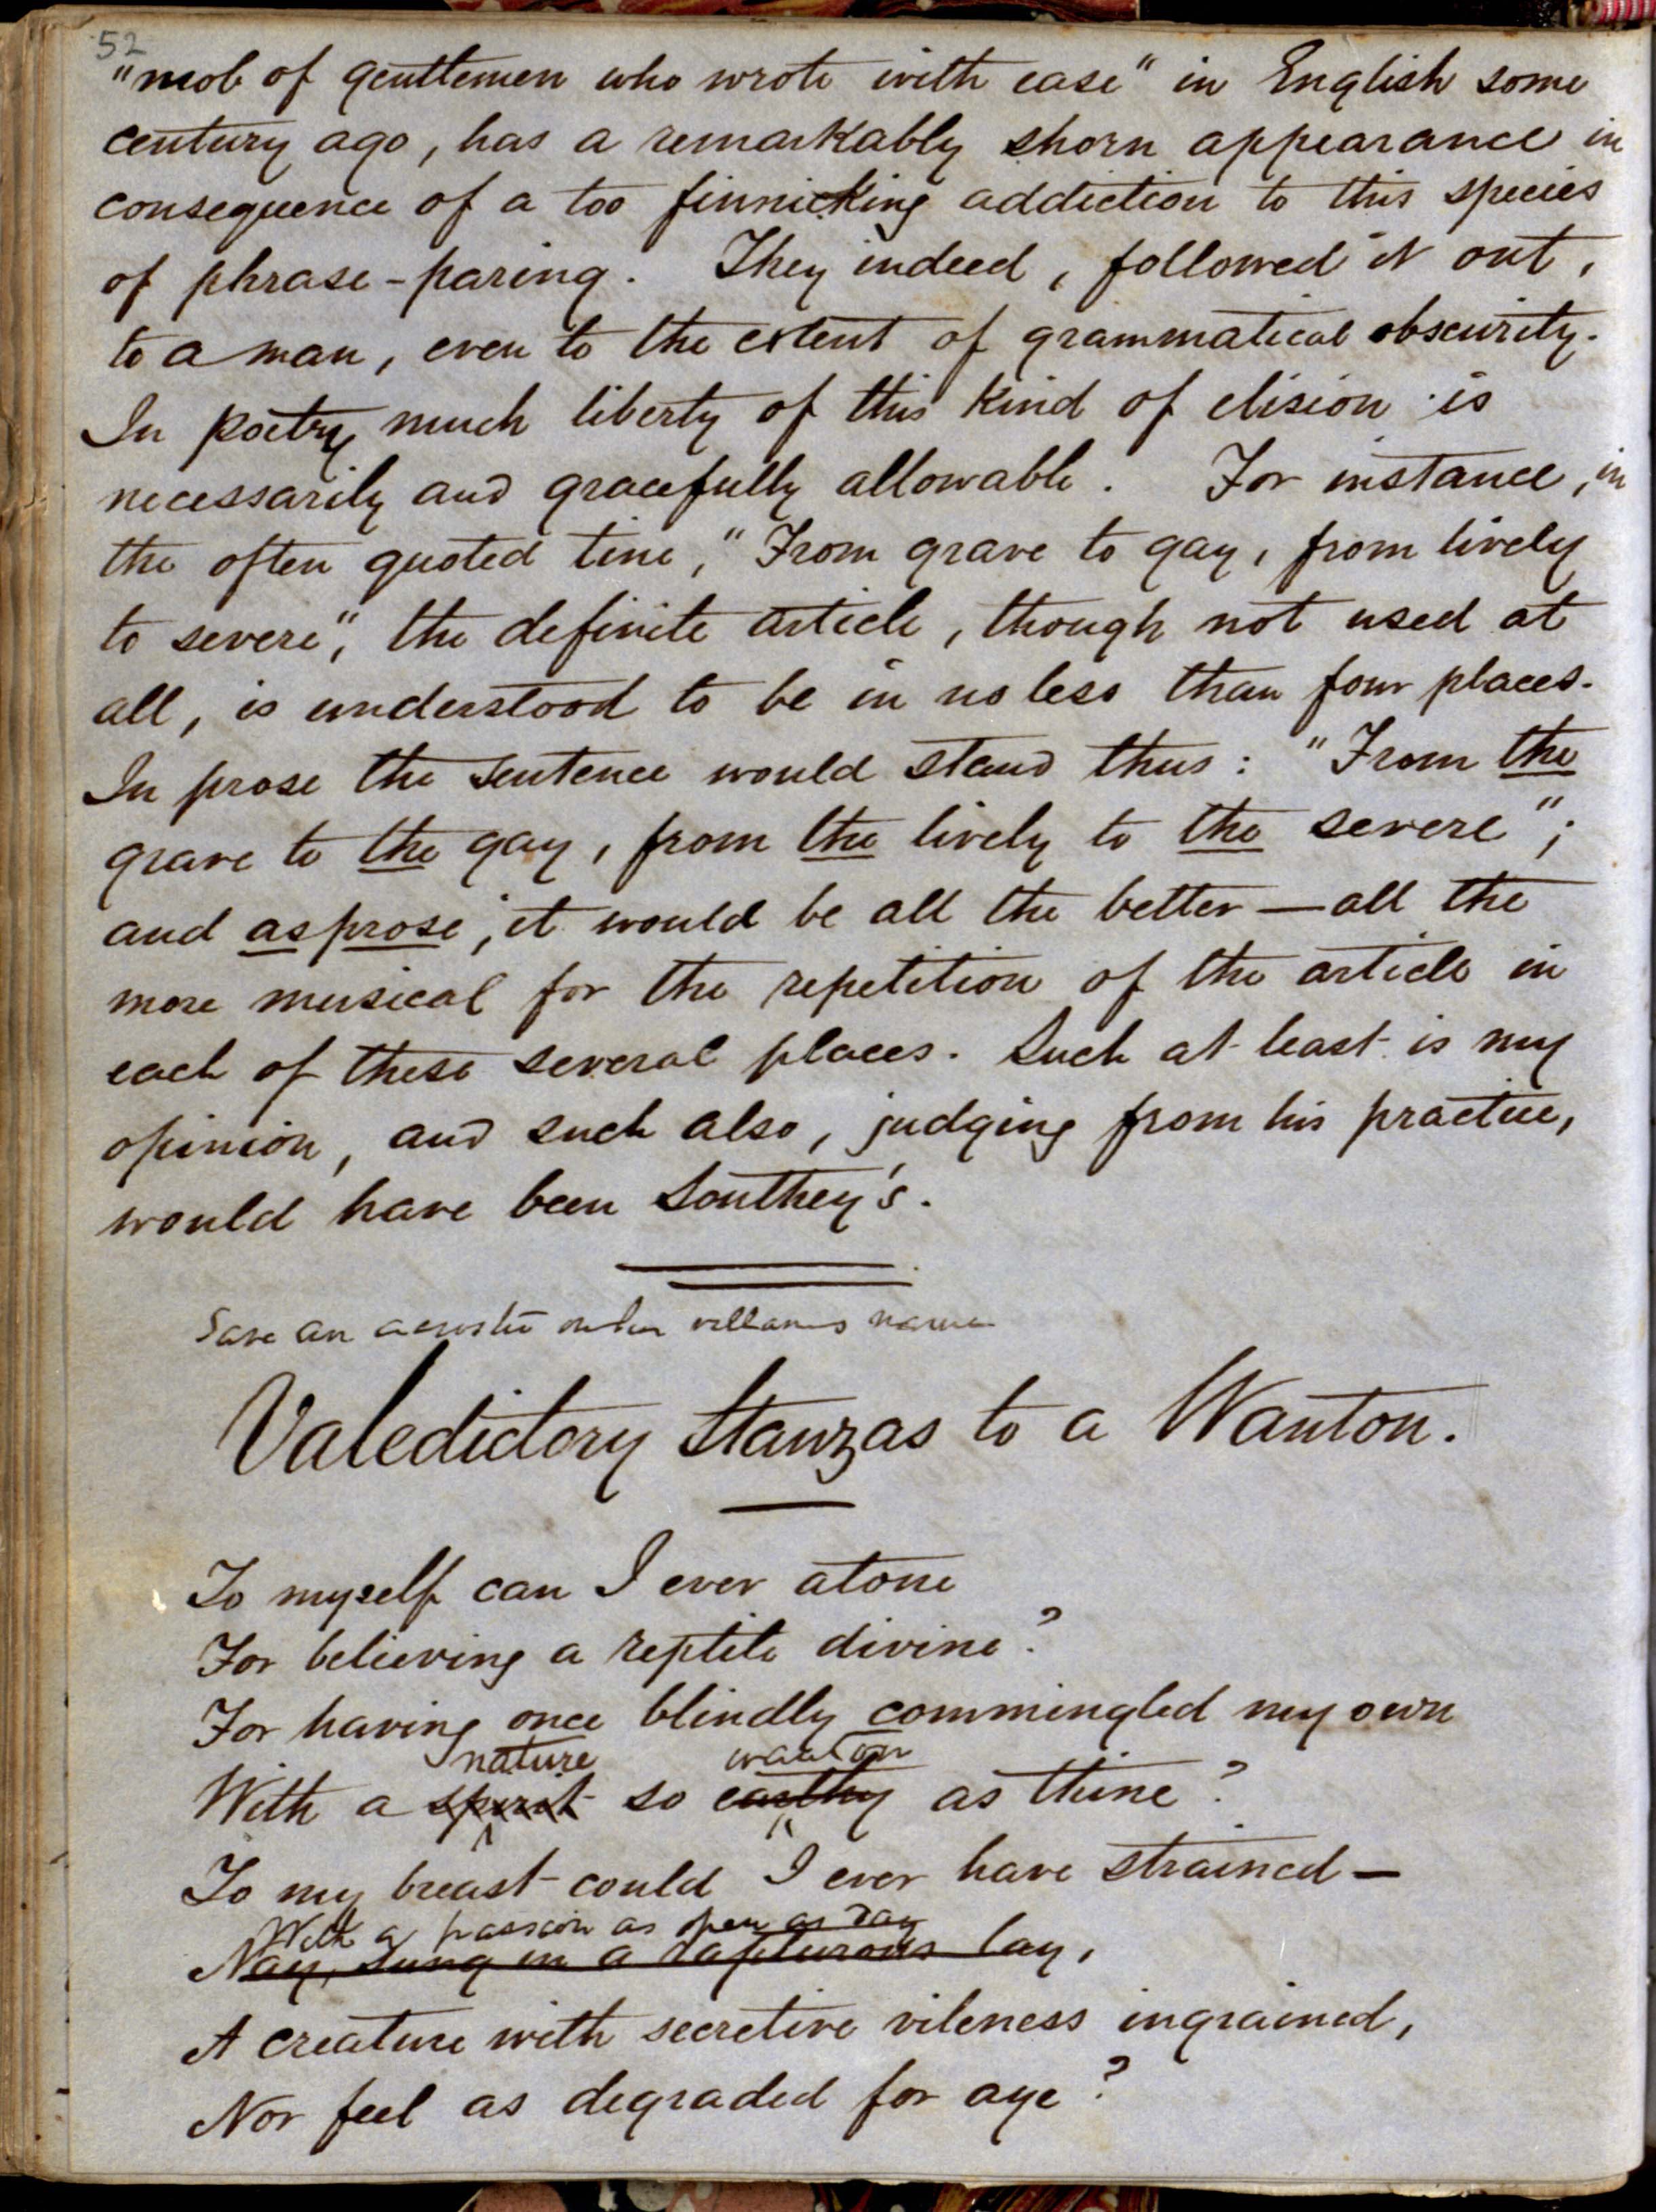 52
"mob of gentlemen who wrote with ease" in English some
century ago, has a remarkably shorn appearance in
consequence of a too finnicking addiction to this species
of phrase-paring. They indeed, followed it out,
to a man, even to the extent of grammatical obscurity.
In poetry much liberty of this kind of elision is
necessarily and gracefully allowable. For instance, in
the often quoted line, "From grave to gay, from lively
to severe", the definite article, though not used at
all, is understood to be in no less than four places.
In prose the sentence would stand thus: "From the
grave to the gay, from the lively to the severe";
and as prose, it would be all the better — all the
more musical for the repetition of the article in
each of these several places. Such at least is my
opinion, and such also, judging from his practice,
would have been Southey's.
Save an acrostic on her villanous name
Valedictory Stanzas to a Wanton.
To myself can I ever atone
For believing a reptile divine?
For having once blindly commingled my own
nature wanton
With a spirit so earthy as thine?
To my breast could I ever have strained —
With a passion as open as day
Nay, sung in a rapturous lay,
A creature with secretive vileness ingrained,
Nor feel as degraded for aye?